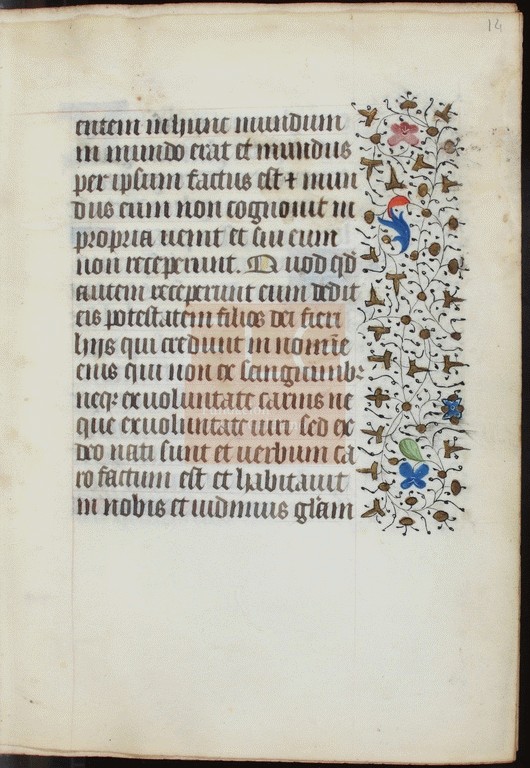 14
entem in hunc mundum
in mundo erat et mundus
per ipsum factus est & mun
dus eum non cognouit in
propria uenit et sui eum
non receperunt. Quod qd̄
autem receperunt eum dedit
eis potestatem filios dei fieri
hijs qui credunt in nomīe
eius qui non ex sanguinibꝫ
neqꝫ ex uoluntate carnis ne
que ex uoluntate uiri sed ex
deo nati sunt et uerbum ca
ro factum est et habitauit
in nobis et uidimus glām